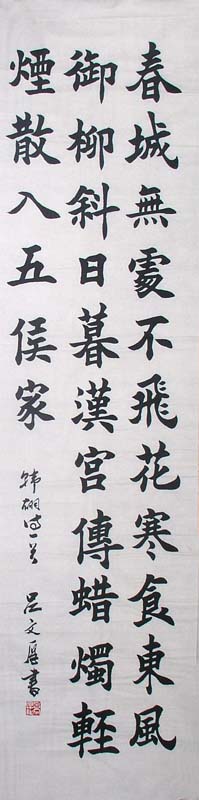 春城無處不飛花寒食東風
御柳斜日暮漢宮傳蜡燭軽
煙散入五侯家
韓翃詩一首 吕文書